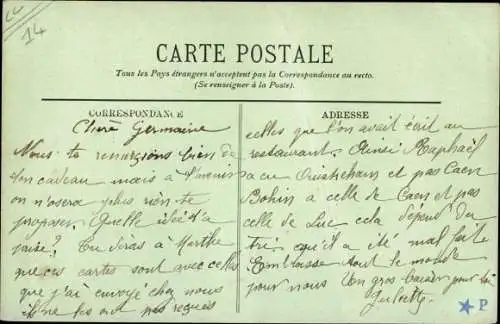 14
CARTE POSTALE
Tous les Pays étrangers n'acceptent pas la Correspondance au recto.
(Se renseigner à la Poste).
CORRESPONDANCE
ADRESSE
Chère Germaine
Nous te remercions bien de
ton cadeau mais à l'avenir
on n'osera plus rien te
proposer. Quelle idée t'a
Tu diras à Marthe
que ces cartes sont avec celles
que j'ai envoyé chez nous
il ne les ont pas reçues
celles que l'on avait écrit au
restaurant. Ainsi Raphaël
a eu Ouistreham et pas Caen
Bohin a celle de Caen et pas
celle de Luc cela dépend du
tri qu'il a été mal fait
Embrasse tout le monde
pour nous Un gros baiser pour toi
Juliette
P